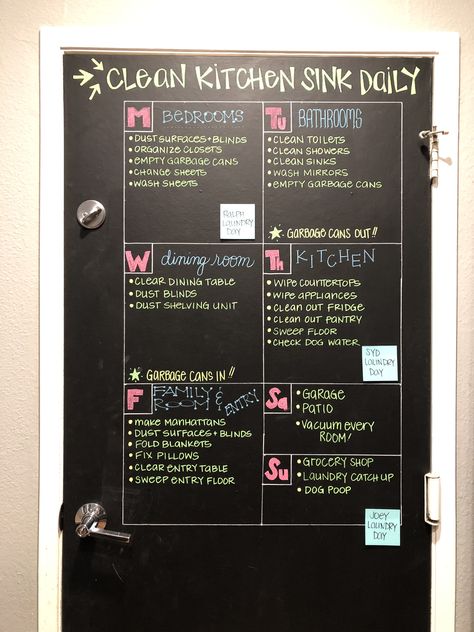 CLEAN KITCHEN SINK DAILY
M BEDROOMS
• DUST SURFACES + BLINDS
• ORGANIZE CLOSETS
• EMPTY GARBAGE CANS
• CHANGE SHEETS
• WASH SHEETS
RALPH LAUNDRY
DAY
Tu BATHROOMS
• CLEAN TOILETS
• CLEAN SHOWERS
• CLEAN SINKS
• WASH MIRRORS
• EMPTY GARBAGE CANS
GARBAGE CANS OUT!!
W dining room
• CLEAR DINING TABLE
• DUST BLINDS
• DUST SHELVING UNIT
GARBAGE CANS IN!!
Th KITCHEN
• WIPE COUNTERTOPS
• WIPE APPLIANCES
• CLEAN OUT FRIDGE
• CLEAN OUT PANTRY
• SWEEP FLOOR
• CHECK DOG WATER
SYD
LAUNDRY
DAY
F FAMILY &
ROOM ENTRY
• MAKE MANHATTANS
• DUST SURFACES + BLINDS
• FOLD BLANKETS
• FIX PILLOWS
• CLEAR ENTRY TABLE
• SWEEP ENTRY FLOOR
Sa • GARAGE
• PATIO
• VACUUM EVERY
ROOM!
Su • GROCERY SHOP
• LAUNDRY CATCH UP
• DOG POOP
JOEY
LAUNDRY
DAY